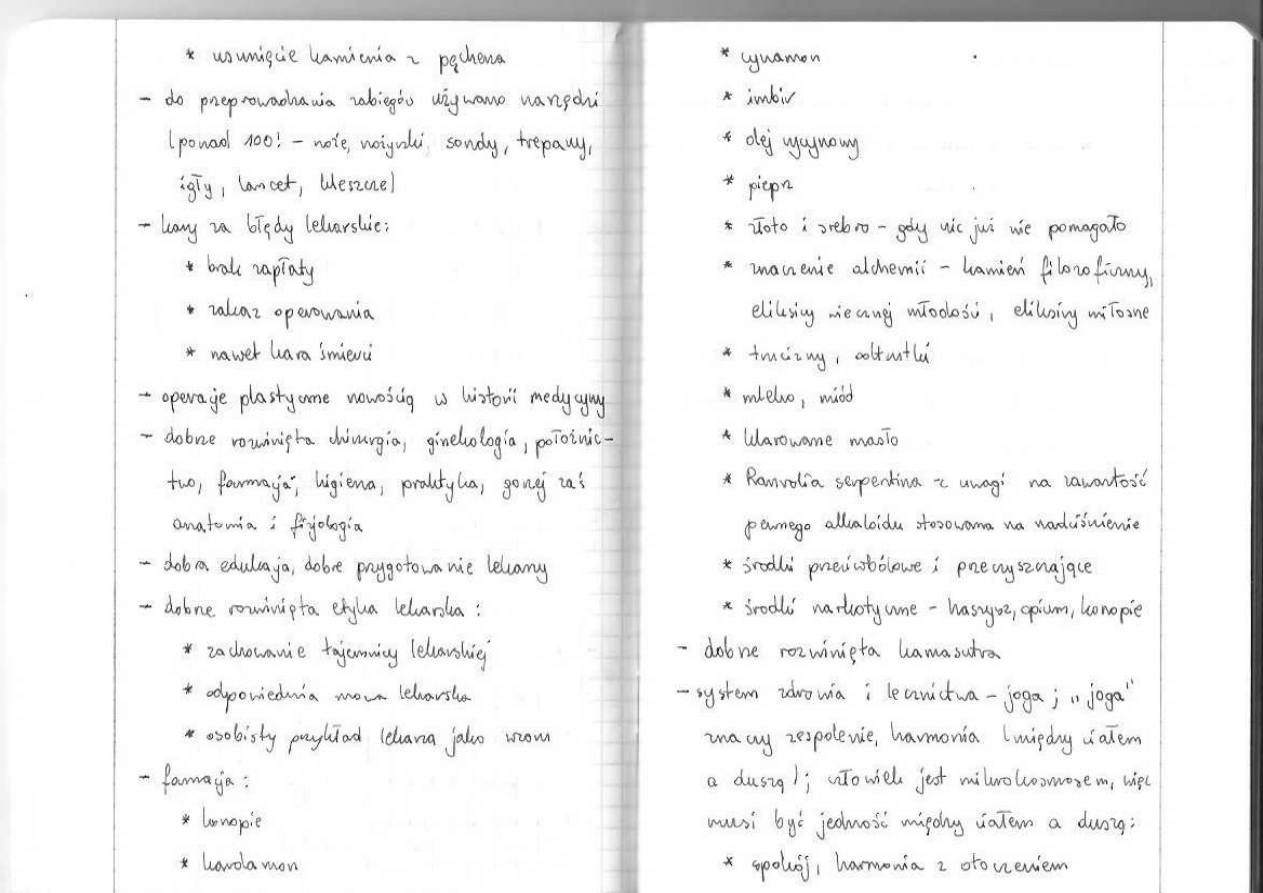 * usunięcie kamienia z pęcherza
- do przeprowadzania zabiegów używano narzędzi
(ponad 100! - noże, nożyczki, sondy, trepany,
igły, lancet, kleszcze)
- kary za błędy lekarskie:
* brak zapłaty
* zakaz operowania
* nawet kara śmierci
- operacje plastyczne nowością w historii medycyny
- dobrze rozwinięta chirurgia, ginekologia, położnic-
two, farmacja, higiena, praktyka, gorzej zaś
anatomia i fizjologia
- dobra edukacja, dobre przygotowanie lekarzy
- dobrze rozwinięta etyka lekarska:
* zachowanie tajemnicy lekarskiej
* odpowiednia mowa lekarska
* osobisty przykład lekarza jako wzoru
- farmacja:
* konopie
* kardamon
* cynamon
* imbir
* olej rycynowy
* pieprz
* złoto i srebro - gdy nic już nie pomagało
* znaczenie alchemii - kamień filozoficzny,
eliksiry wiecznej młodości, eliksiry miłosne
* trucizny, odtrutki
* mleko, miód
* klarowane masło
* Rauvolfia serpentina - z uwagi na zawartość
pewnego alkaloidu stosowana na nadciśnienie
* środki przeciwbólowe i przeczyszczające
* środki narkotyczne - haszysz, opium, konopie
- dobrze rozwinięta kamasutra
- system zdrowia i lecznictwa - joga; „joga"
znaczy zespolenie, harmonia (między ciałem
a duszą); człowiek jest mikrokosmosem, więc
musi być jedność między ciałem a duszą:
* spokój, harmonia z otoczeniem